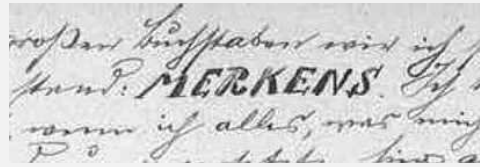 großen Buchstaben wie ich
stand: MERKENS. Ich
wenn ich alles, was mich